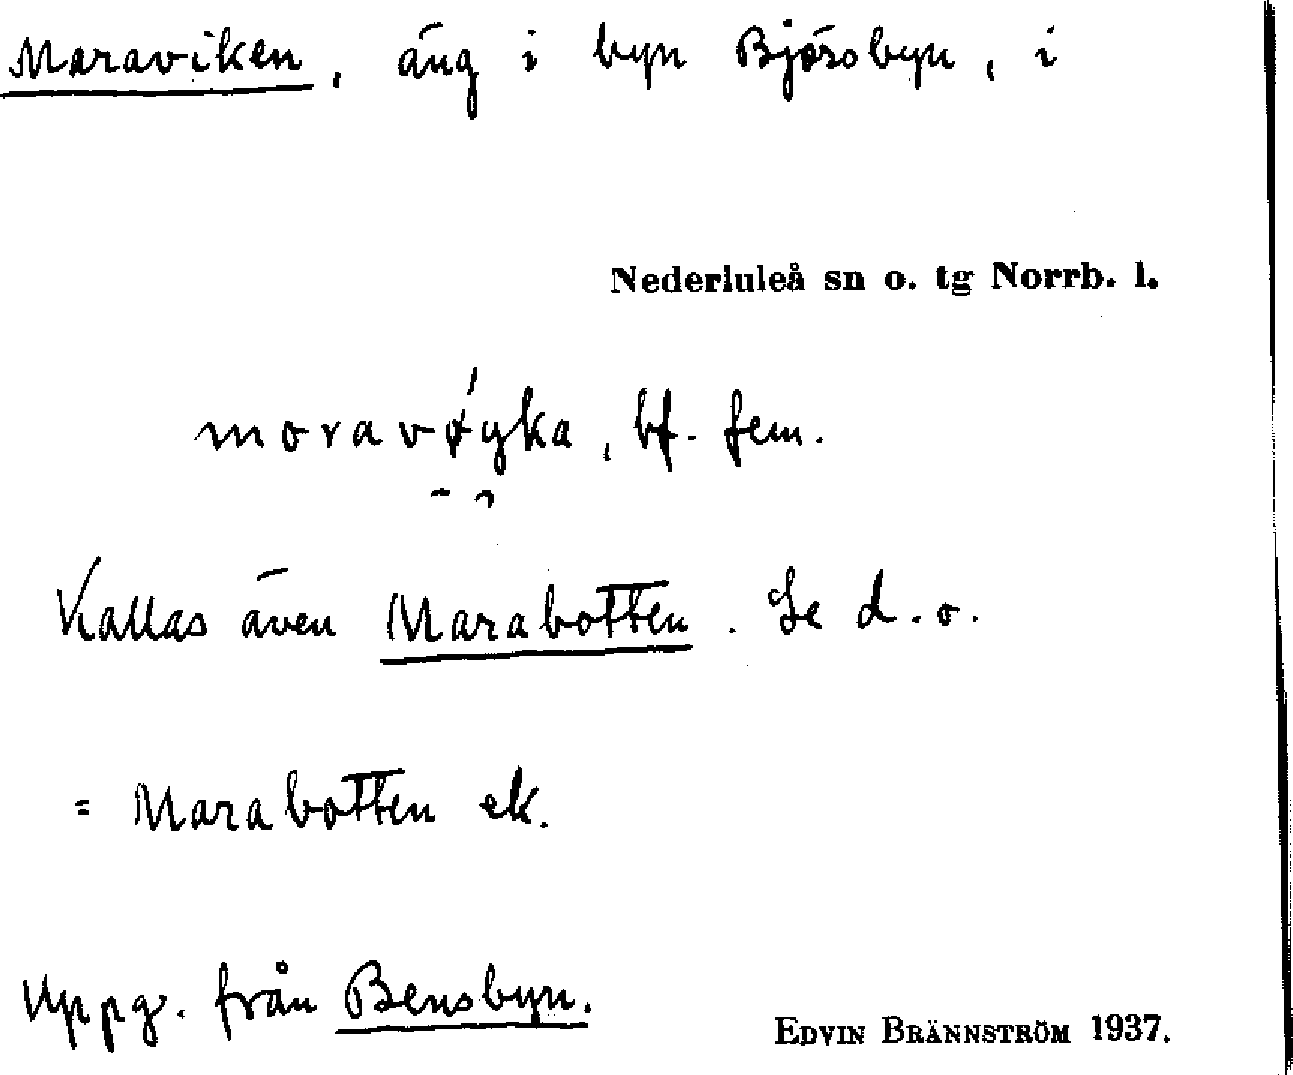 Maraviken, äng i byn Björsbyn, i
Nederluleå sn o. tg Norrb. l.
moravøyka, bf. fem.
Kallas även Marabotten. Se d.o.
= Marabotten ek.
Uppg. från Bensbyn.
EDVIN BRÄNNSTRÖM 1937.